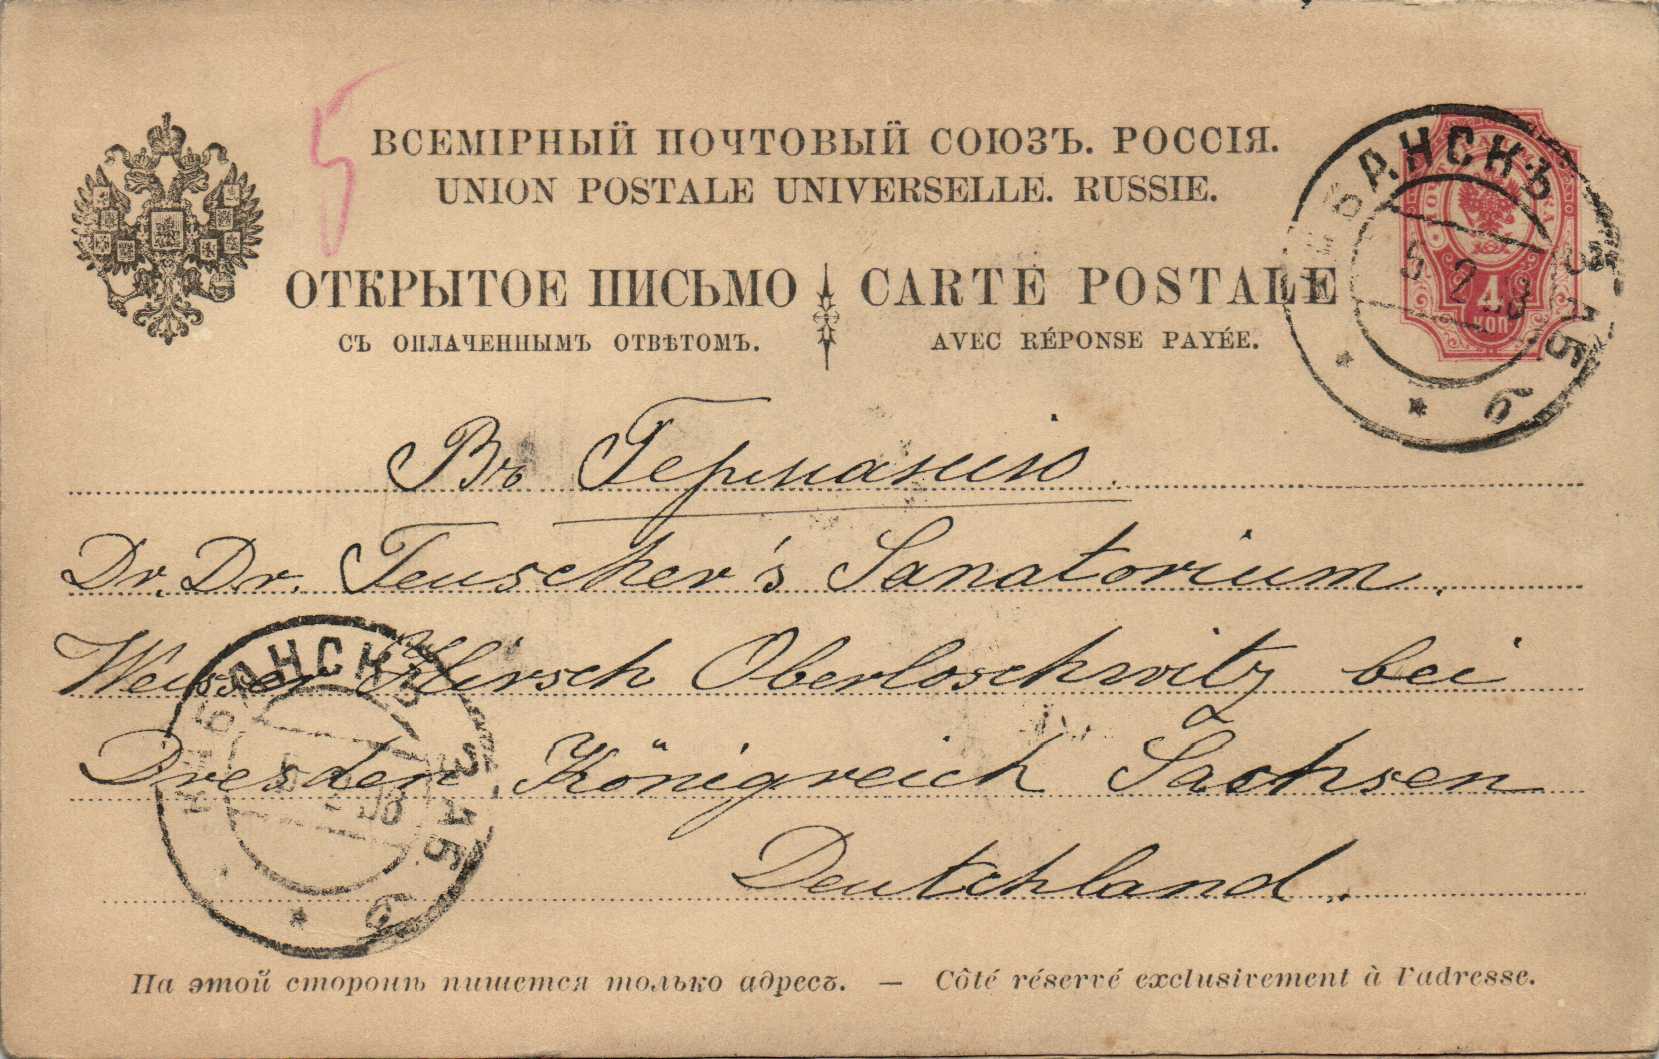 5
ВСЕМІРНЫЙ ПОЧТОВЫЙ СОЮЗЪ. РОССІЯ.
UNION POSTALE UNIVERSELLE. RUSSIE.
ОТКРЫТОЕ ПИСЬМО
СЪ ОПЛАЧЕННЫМЪ ОТВѢТОМЪ.
CARTE POSTALE
AVEC RÉPONSE PAYÉE.
4
КОП
5 2
б
Въ Германію.
Dr. Dr. Teuscher's Sanatorium.
Weisser Hirsch Oberloschwitz bei
Dresden Königreich Sachsen
Deutchland.
б
На этой сторонѣ пишется только адресъ. — Côté réservé exclusivement à l'adresse.